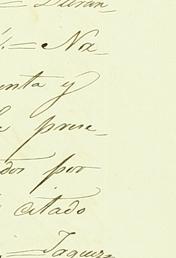 = Duran-
= Na-
enta y
prese-
dos por
citado
= Jaquez